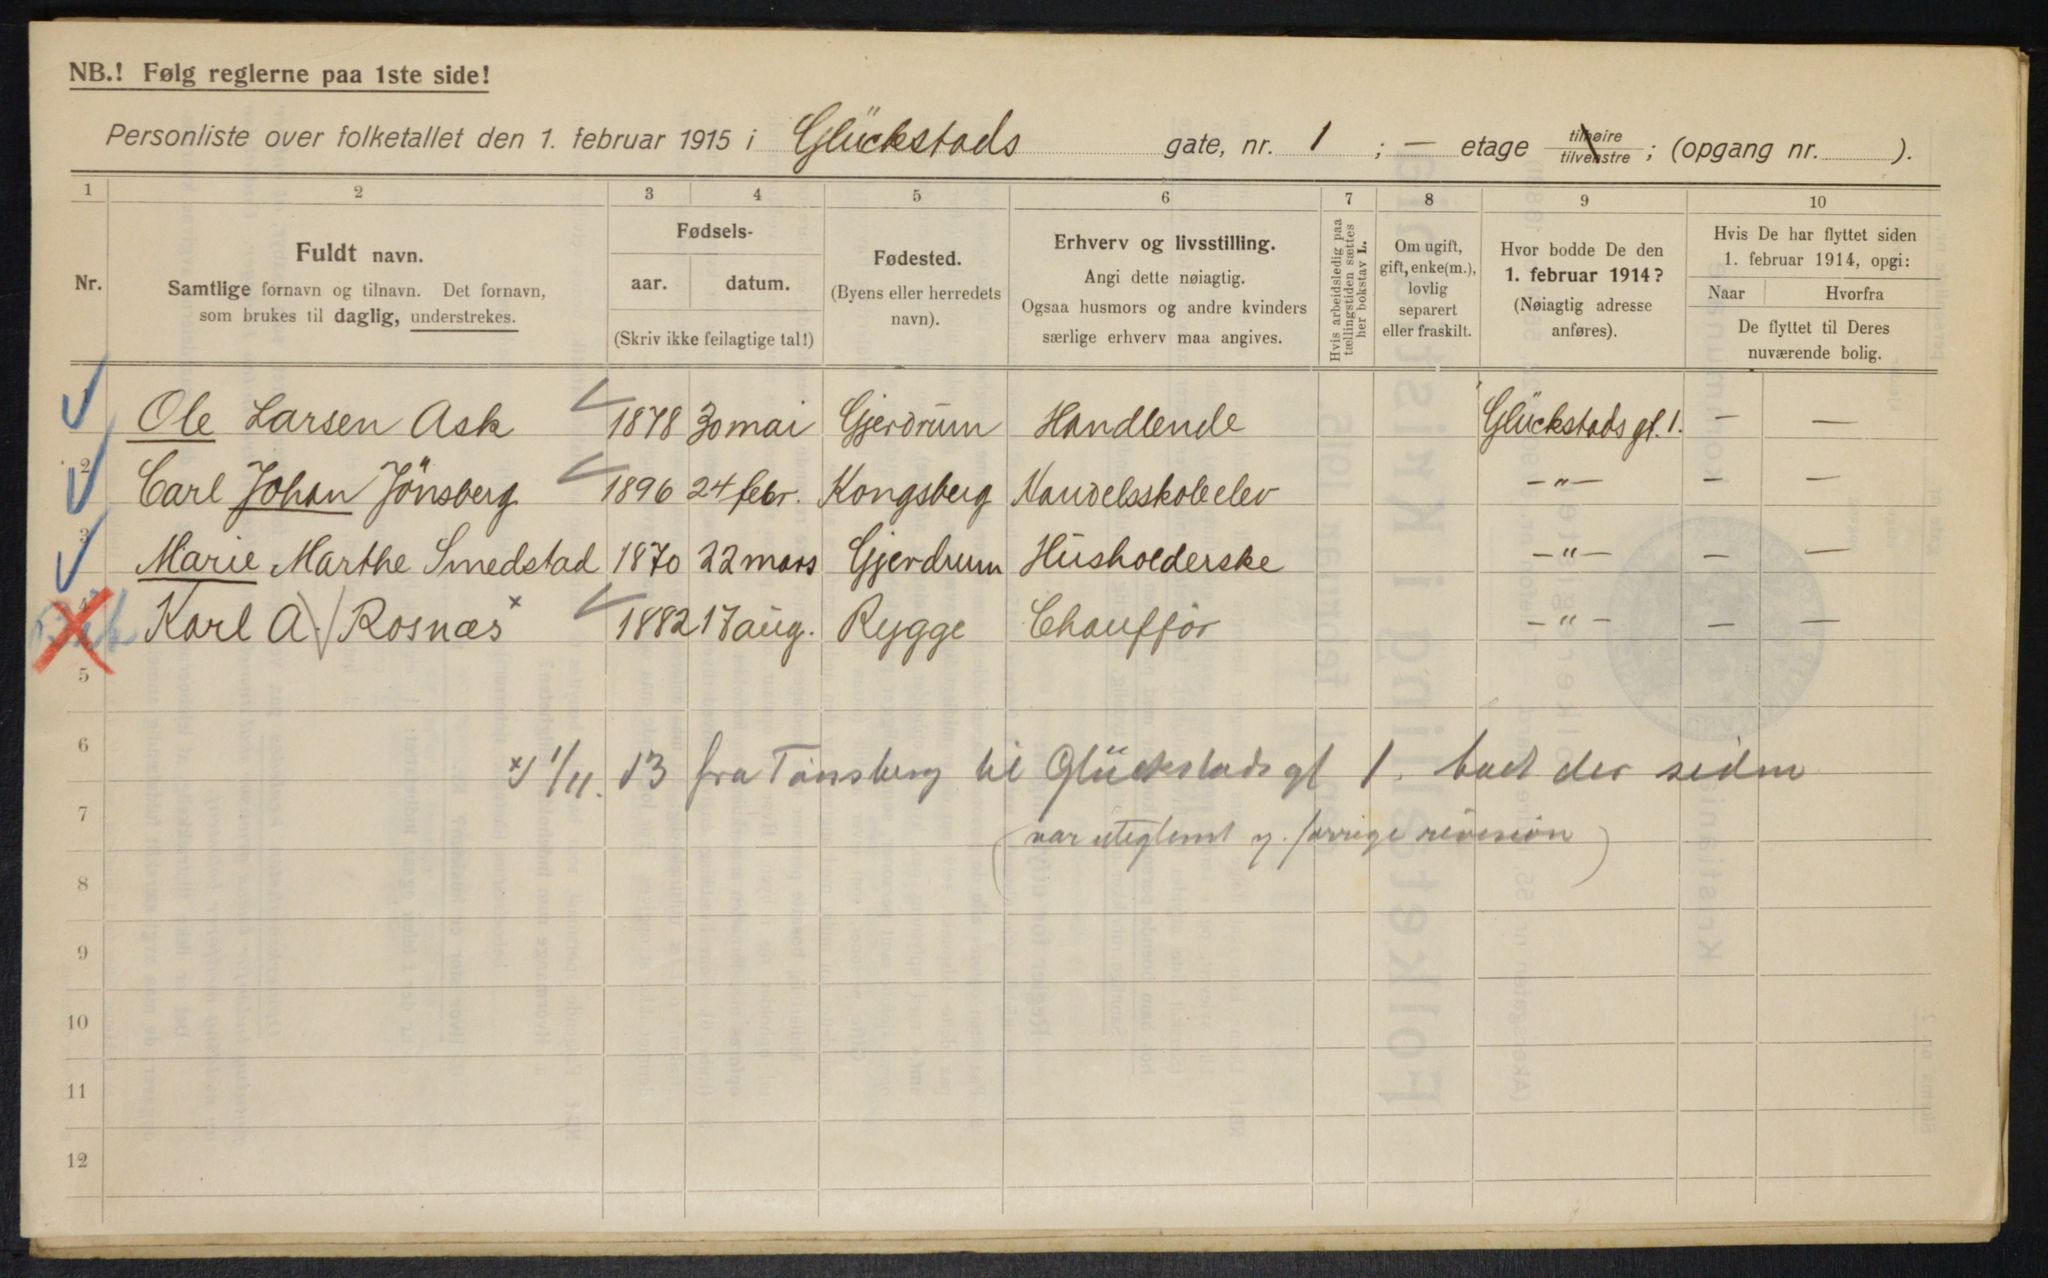 NB.! Følg reglerne paa 1ste side!
Personliste over folketallet den 1. februar 1915 i Glückstads gate, nr. 1 ; — etage tilhøire tilvenstre ; (opgang nr. ).
1 2 3 4 5 6 7 8 9 10
Nr.
Fuldt navn.
Samtlige fornavn og tilnavn. Det fornavn,
som brukes til daglig, understrekes.
Fødsels-
aar. datum.
(Skriv ikke feilagtige tal!)
Fødested.
(Byens eller herredets
navn).
Erhverv og livsstilling.
Angi dette nøiagtig.
Ogsaa husmors og andre kvinders
særlige erhverv maa angives.
Hvis arbeidsledig paa
tællingstiden sættes
her bokstav L.
Om ugift,
gift, enke(m.),
lovlig
separert
eller fraskilt.
Hvor bodde De den
1. februar 1914?
(Nøiagtig adresse
anføres).
Hvis De har flyttet siden
1. februar 1914, opgi:
Naar Hvorfra
De flyttet til Deres
nuværende bolig.
1 Ole Larsen Ask 1878 30 mai Gjerdrum Handlende Glückstads gt. 1. — —
2 Carl Johan Jönsberg 1896 24 febr. Kongsberg Handelsskoleelev —"— — —
3 Marie Marthe Smedstad 1870 22 mars Gjerdrum Husholderske —"— — —
4 Karl A / Rosnæs x 1882 17 aug. Rygge Chauffør —"— — —
5
6
x) 1/11. 13 fra Tønsberg til Glückstads gt 1. boet der siden
7
(var uteglemt v. forrige revision)
8
9
10
11
12